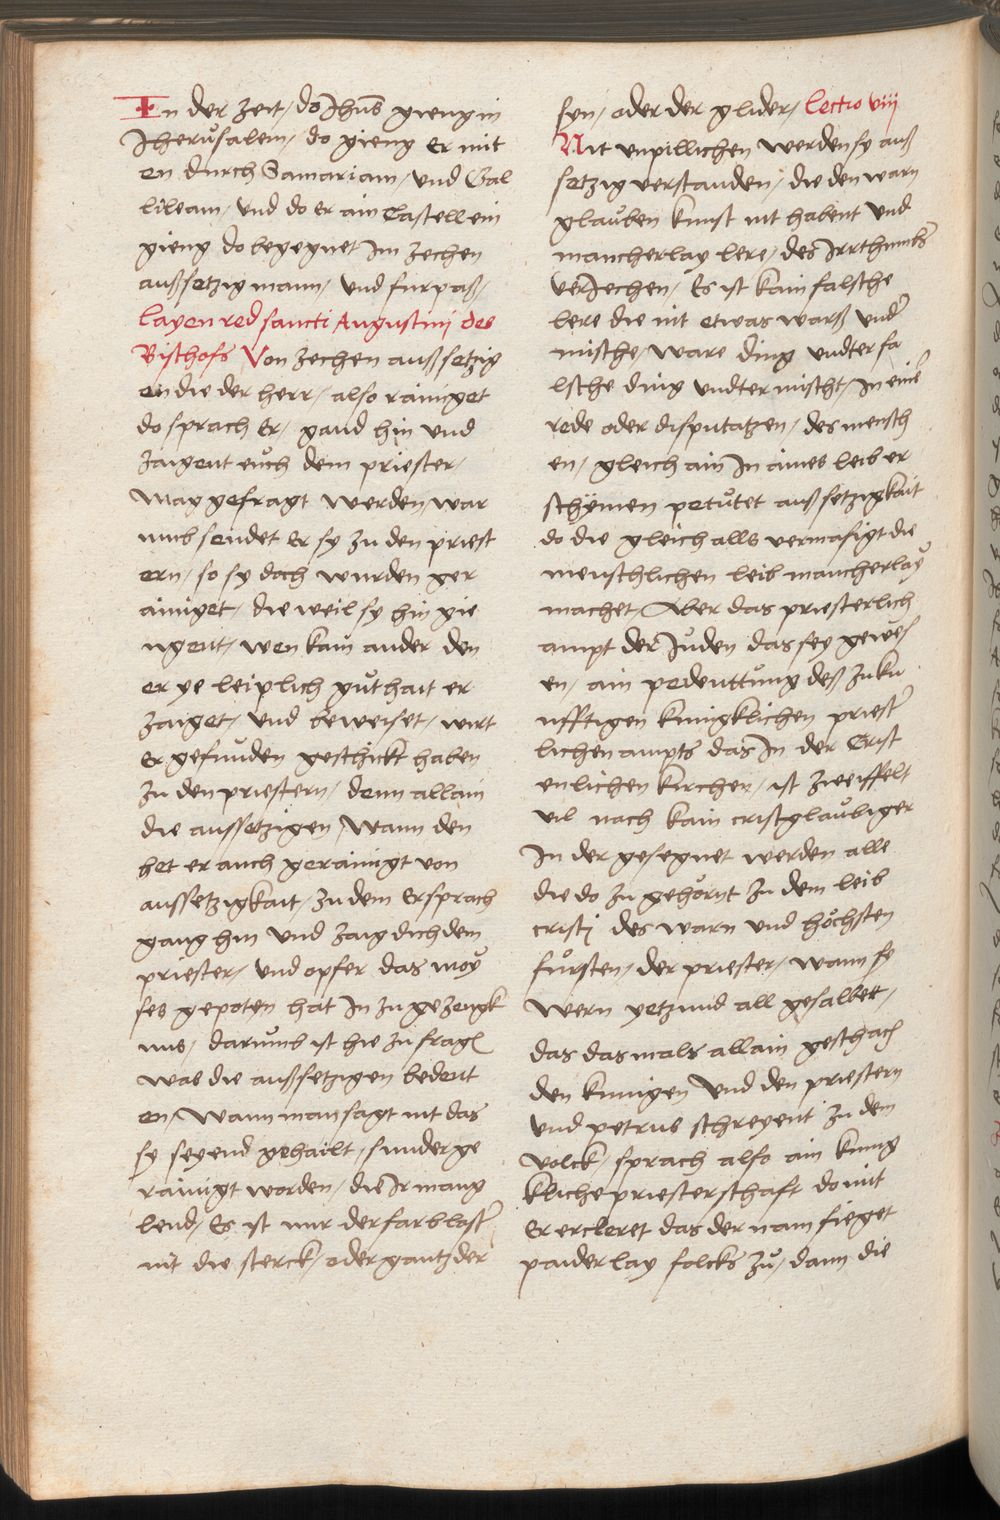 In der zeit / do Jhus gieng in
Jherusalem / do gieng er mit
en durch Samariam / und Gal
lileam / und do er ain Castell ein
gieng do begegnet Im zechen
außsetzig mann / und furpaß /
Layen red sancti Augustinj des
Bischofs Von zechen außsetzig
en die der herr / also rainiget
do sprach Er / gand hin und
zaigent euch dem priester /
mag gefragt werden war
umb sendet Er sy zu den priest
ern / so sy doch wurden ger
ainiget / die weil sy hin gie
ngent / wen kain ander den
er ye leiplich guthait er
zaiget / und beweiset / wirt
Er gefunden geschickt haben
zu den priestern / denn allain
die aussetzigen / Wann den
het er auch gerainigt von
aussetzigkait / zu dem Er sprach
gang hin und zaig dich dem
priester / und opfer das moy
ses gepoten hat In zu gezeugk
nus / darumb ist hie zu fragen
was die außsetzigen bedeut
en / Wann man sagt nit das
sy seyend gehailt / sunder ge
rainigt worden / die Ir mang
lend / Es ist nur der farb laster
nit die sterck / oder gantz der
syn / oder der glider / Lectio viij
Nit unpillichen werden sy auß
setzig verstanden / die den warn
glauben kunst nit habent und
mancherlay lere / des Irrthumbs
verJechen / Es ist kain falsche
lere die nit etwas warß under
mische / ware ding undter fa
lsche ding undter mischt / In einer
rede oder disputatzen / des mensch
en / gleich ain In aines leib er
schynen petutet außsetzigkait
do die gleich alls vermasigt die
menschlichen leib mancherlay
machet / Aber das priesterlich
ampt der Juden das sey gewes
en / ain pedeuttung deß zuku
nfftigen kunigklichen priester
lichen ampts das In der Crist
enlichen kirchen / ist zweiffelt
vil nach kain cristglaubiger
In der gesegnet werden alle
die do zu gehörnt zu dem leib
cristj des warn und höchsten
fursten / der priester / wann sy
wern yetzund all gesalbett /
das dasmals allain geschach
den kunigen und den priestern
und petrus schreyent zu dem
volck / sprach also ain kunig
kliche priesterschaft do mit
Er ercleret das der nam sieget
paiderlay folcks zu / dann die